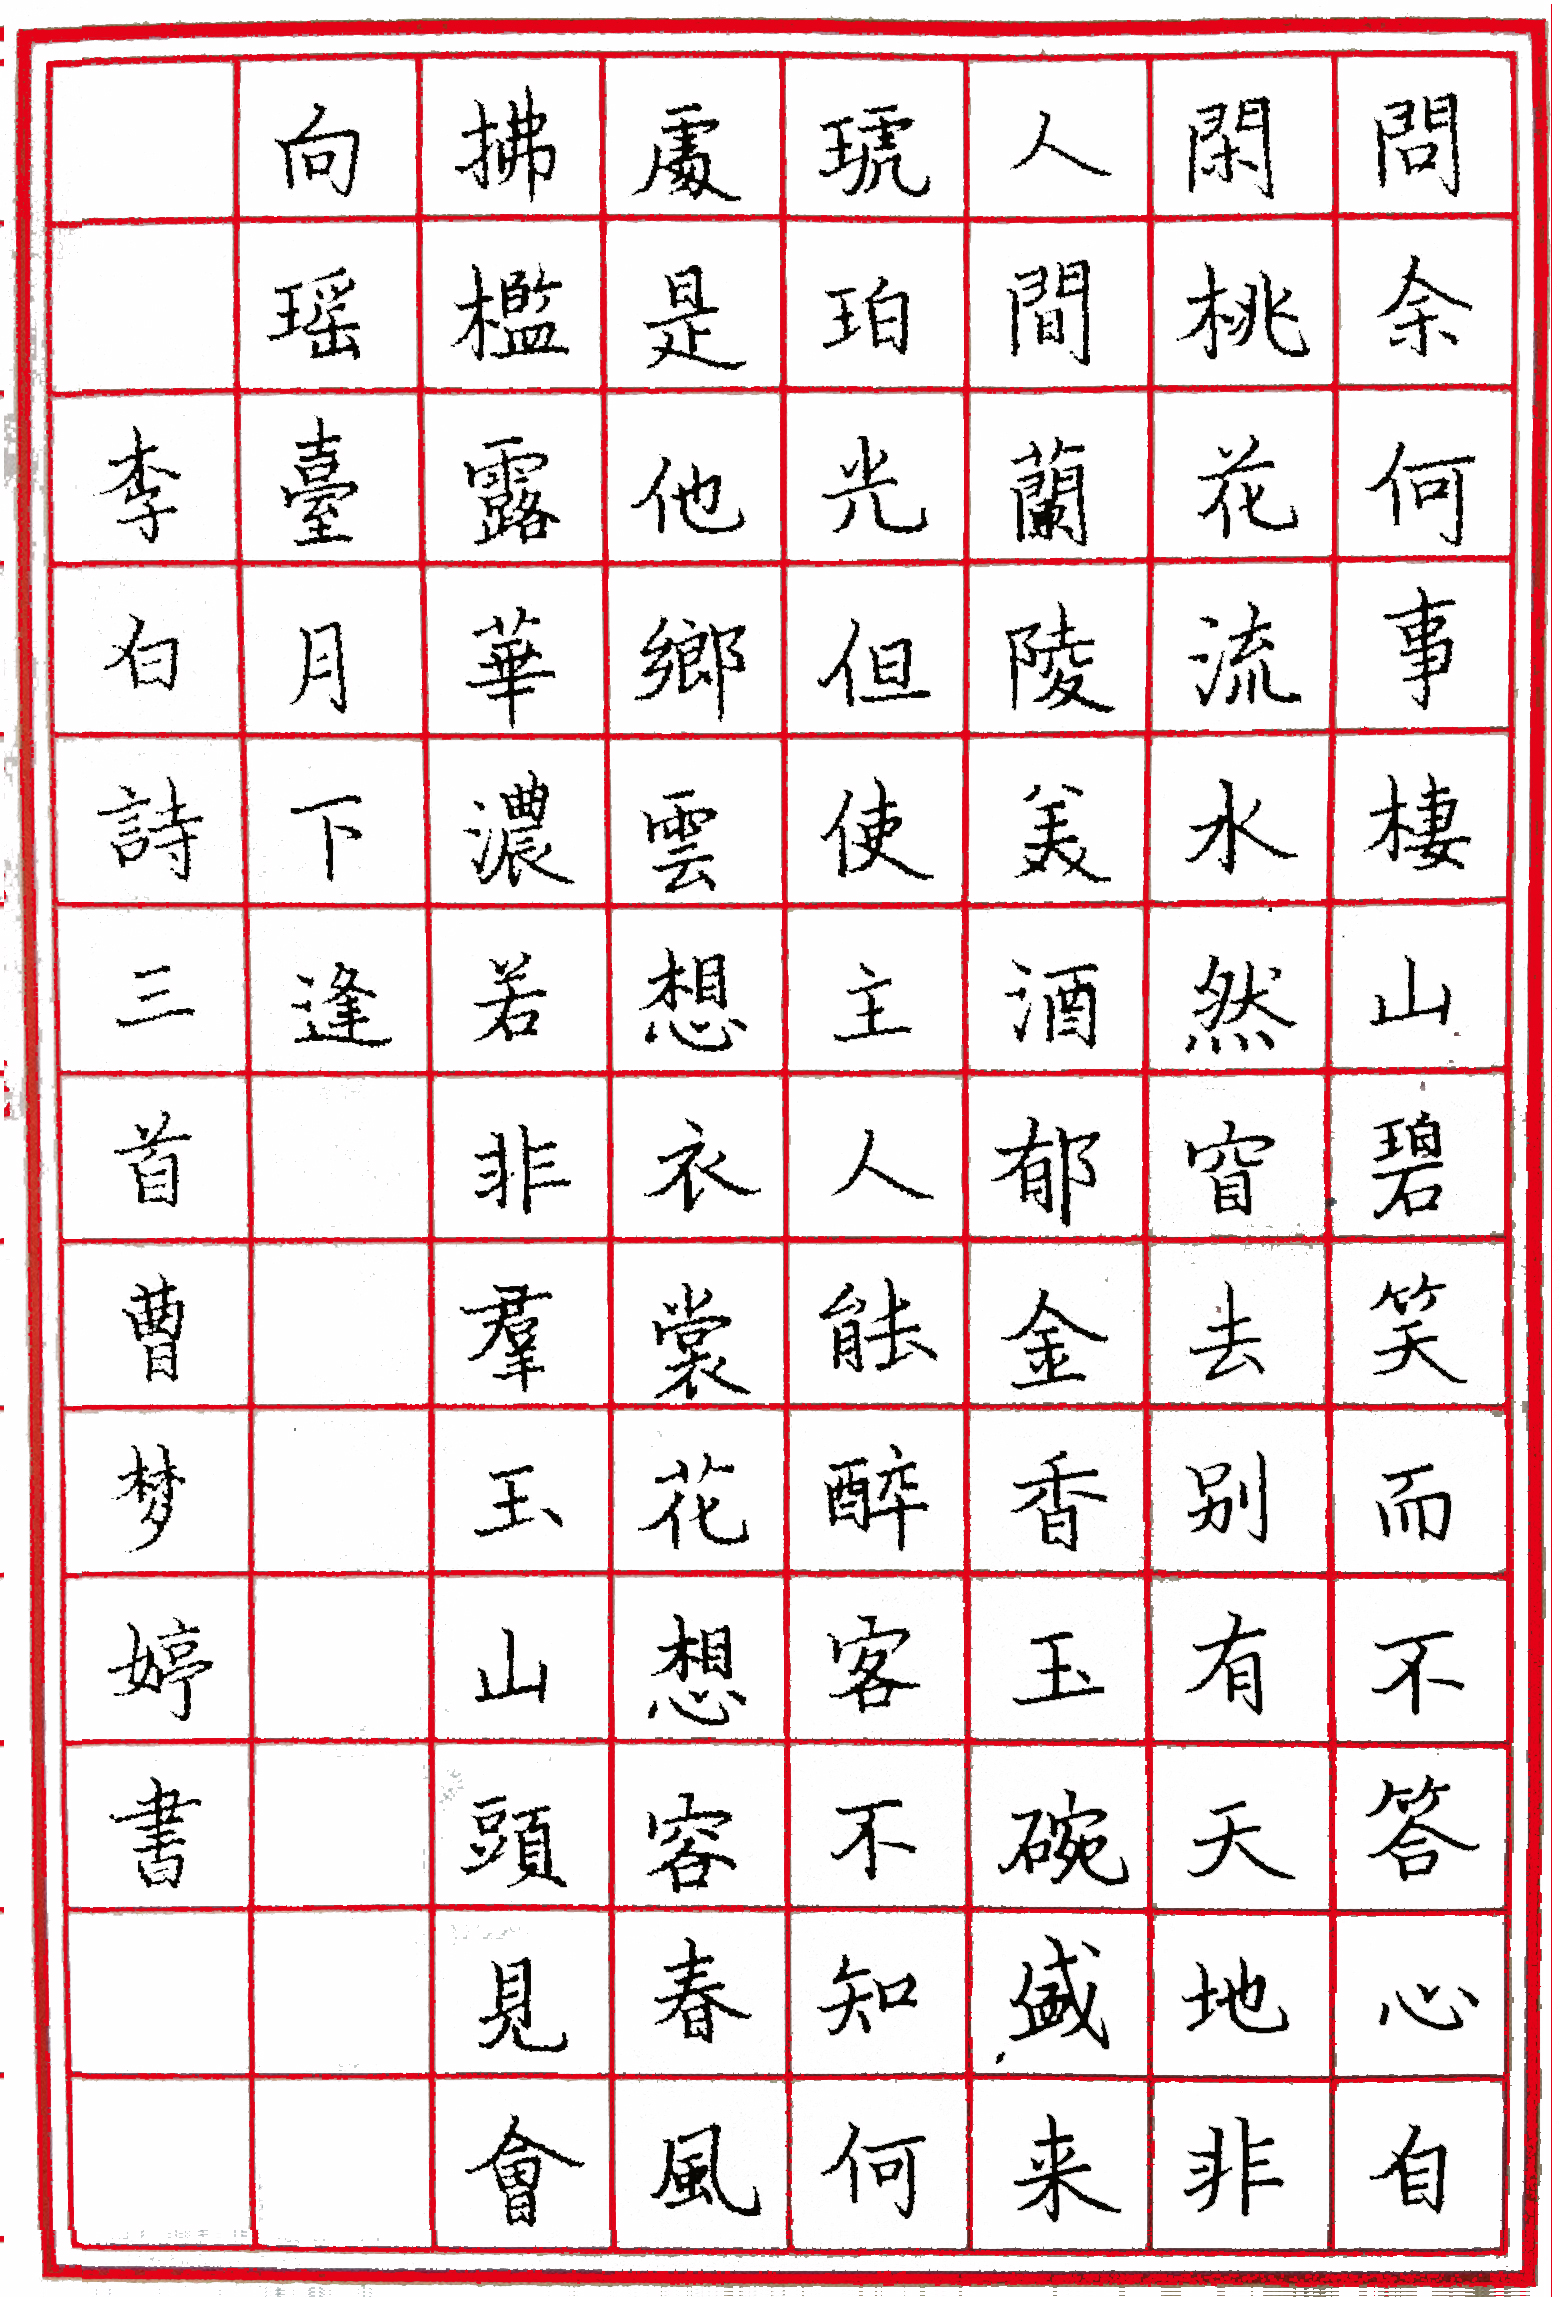 問余何事棲山碧笑而不答心自
閑桃花流水然窅去别有天地非
人間蘭陵美酒郁金香玉碗盛来
琥珀光但使主人能醉客不知何
處是他鄉雲想衣裳花想容春風
拂檻露華濃若非羣玉山頭見會
向瑶臺月下逢
李白詩三首曹梦婷書